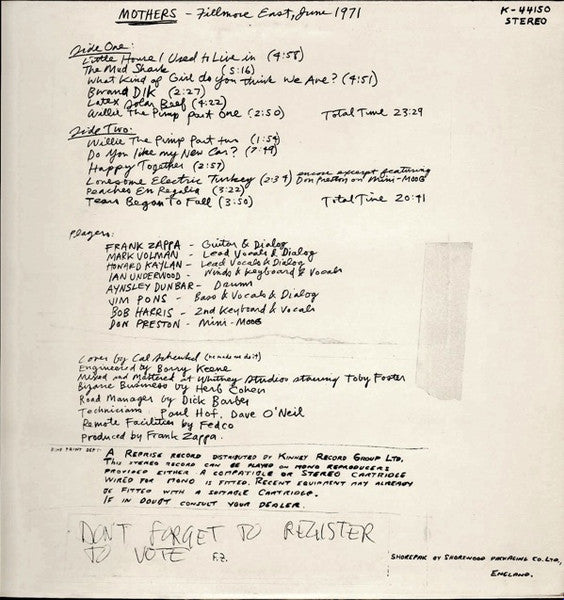 MOTHERS - Fillmore East, June 1971
K-44150
STEREO
Side One:
Little House I Used to Live in (4:58)
The Mud Shark (5:16)
What Kind of Girl do you think We Are? (4:51)
Bwana Dik (2:27)
Latex Solar Beef (4:22)
Willie The Pimp Part One (2:50) Total Time 23:29
Side Two:
Willie The Pimp Part two (1:54)
Do You like my New Car? (7:49)
Happy Together (2:57)
Lonesome Electric Turkey (2:34) encore excerpt featuring
Don Preston on Mini-Moog
Peaches En Regalia (3:22)
Tears Began To Fall (3:50) Total Time 20:41
Players:
FRANK ZAPPA - Guitar & Dialog
MARK VOLMAN - Lead Vocals & Dialog
HOWARD KAYLAN - Lead Vocals & Dialog
IAN UNDERWOOD - Winds & Keyboard & Vocals
AYNSLEY DUNBAR - Drums
JIM PONS - Bass & Vocals & Dialog
BOB HARRIS - 2nd Keyboard & Vocals
DON PRESTON - Mini-Moog
Cover by Cal Schenkel (he made me do it)
Engineered by Barry Keene
Mixed and Mastered at Whitney Studios starring Toby Foster
Bizarre Business by Herb Cohen
Road Manager by Dick Barber
Technicians Paul Hof, Dave O'Neil
Remote Facilities by Fedco
Produced by Frank Zappa.
FINE PRINT DEPT: A REPRISE RECORD DISTRIBUTED BY KINNEY RECORD GROUP LTD.
THIS STEREO RECORD CAN BE PLAYED ON MONO REPRODUCERS
PROVIDED EITHER A COMPATIBLE OR STEREO CARTRIDGE
WIRED FOR MONO IS FITTED. RECENT EQUIPMENT MAY ALREADY
BE FITTED WITH A SUITABLE CARTRIDGE.
IF IN DOUBT CONSULT YOUR DEALER.
DON'T FORGET TO REGISTER
TO VOTE F.Z.
SHOREPAK BY SHOREWOOD PACKAGING CO. LTD.,
ENGLAND.